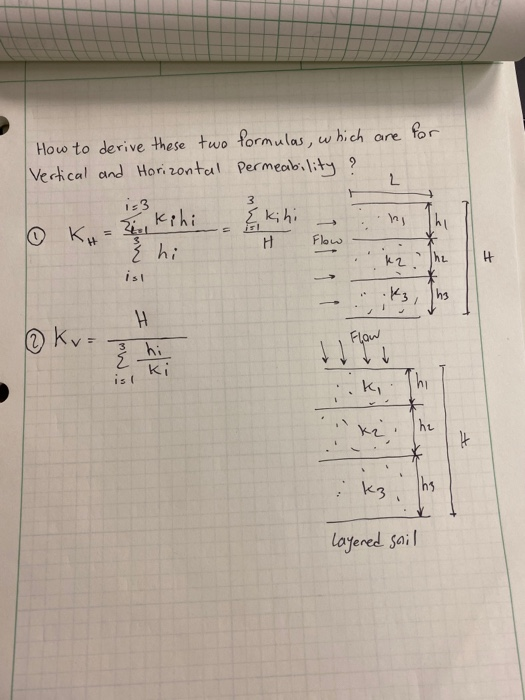 How to derive these two formulas, which are for
Vertical and Horizontal Permeability ?
① K_H = (Σ_{i=1}^{i=3} kihi) / (Σ_{i=1}^{3} hi) = (Σ_{i=1}^{3} kihi) / H
L
Flow
h1 h1
k2 h2
k3 h3
H
② Kv = H / (Σ_{i=1}^{3} hi/ki)
Flow
k1 h1
k2 h2
k3 h3
H
layered soil